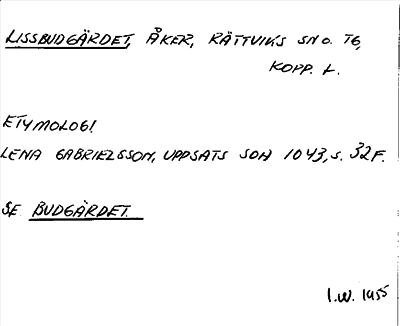 LISSBUDGÄRDET, ÅKER, RÄTTVIKS SN O. TG,
KOPP. L.
ETYMOLOGI
LENA GABRIELSSON, UPPSATS SOH 1043, S. 32 F.
SE BUDGÄRDET
I.W. 1955